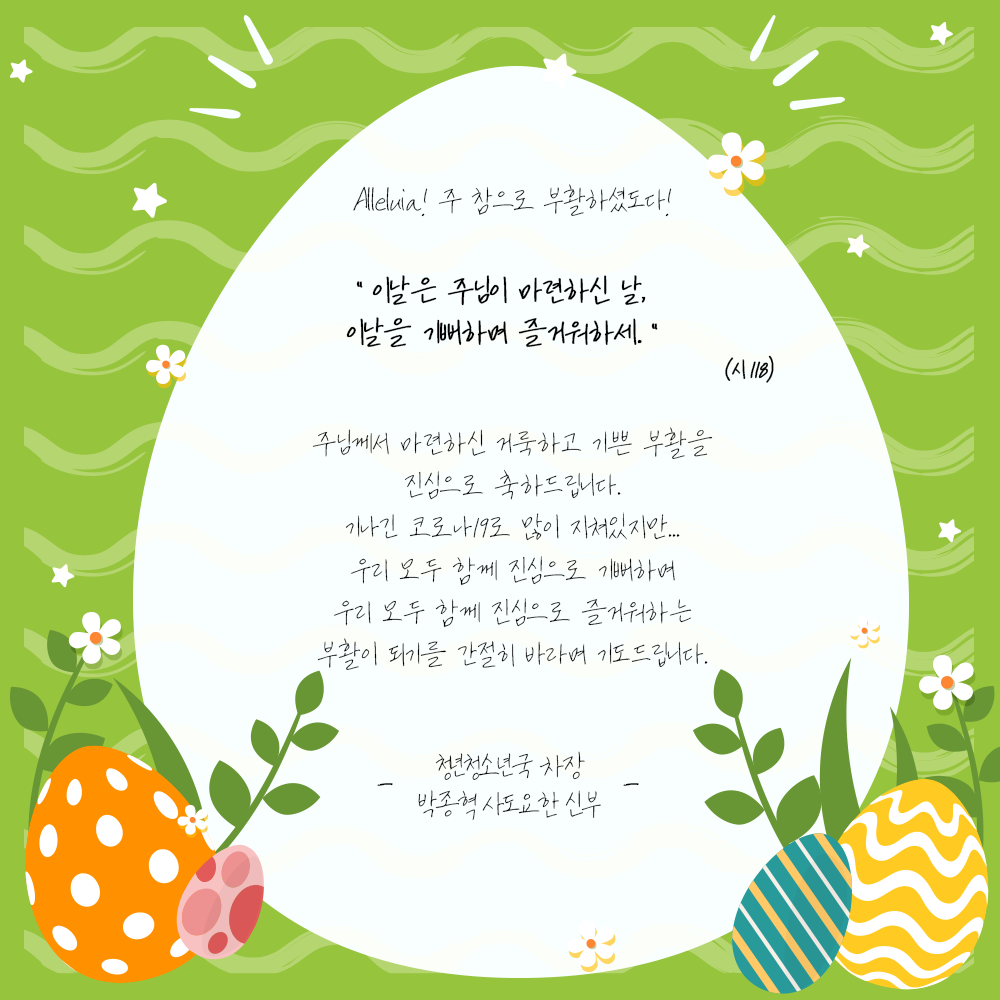 Alleluia! 주 참으로 부활하셨도다!
"이날은 주님이 마련하신 날,
이날을 기뻐하며 즐거워하세."
(시 118)
주님께서 마련하신 거룩하고 기쁜 부활을
진심으로 축하드립니다.
기나긴 코로나19로 많이 지쳐있지만...
우리 모두 함께 진심으로 기뻐하며
우리 모두 함께 진심으로 즐거워하는
부활이 되기를 간절히 바라며 기도드립니다.
청년청소년국 차장
- 박종혁 사도요한 신부 -